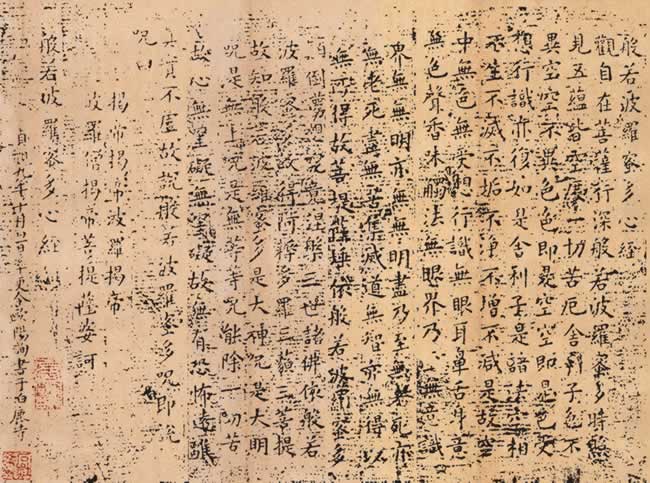 般若波羅蜜多心經
觀自在菩薩行深般若波羅蜜多時照
見五蘊皆空度一切苦厄舍利子色不
異空空不異色色即是空空即是色受
想行識亦復如是舍利子是諸法空相
不生不滅不垢不淨不增不減是故空
中無色無受想行識無眼耳鼻舌身意
無色聲香味觸法無眼界乃至無意識
界無無明亦無無明盡乃至無老死亦
無老死盡無苦集滅道無智亦無得以
無所得故菩提薩埵依般若波羅蜜多
倒夢想究竟涅槃三世諸佛依般若
波羅蜜多故得阿耨多羅三藐三菩提
故知般若波羅蜜多是大神咒是大明
咒是無上咒是無等等咒能除一切苦
故心無罣礙無罣礙故無有恐怖遠離
真實不虛故說般若波羅蜜多咒即說
咒曰
揭帝揭帝波羅揭帝
波羅僧揭帝菩提薩婆訶
般若波羅蜜多心經
貞觀九年十月旦日率更令歐陽詢書于白鹿寺